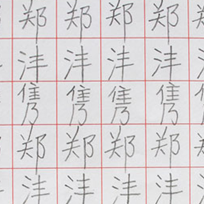 郑 郑 郑 郑 郑
沣 沣 沣 沣 沣
隽 隽 隽 隽 隽
郑 郑 郑 郑 郑
沣 沣 沣 沣 沣